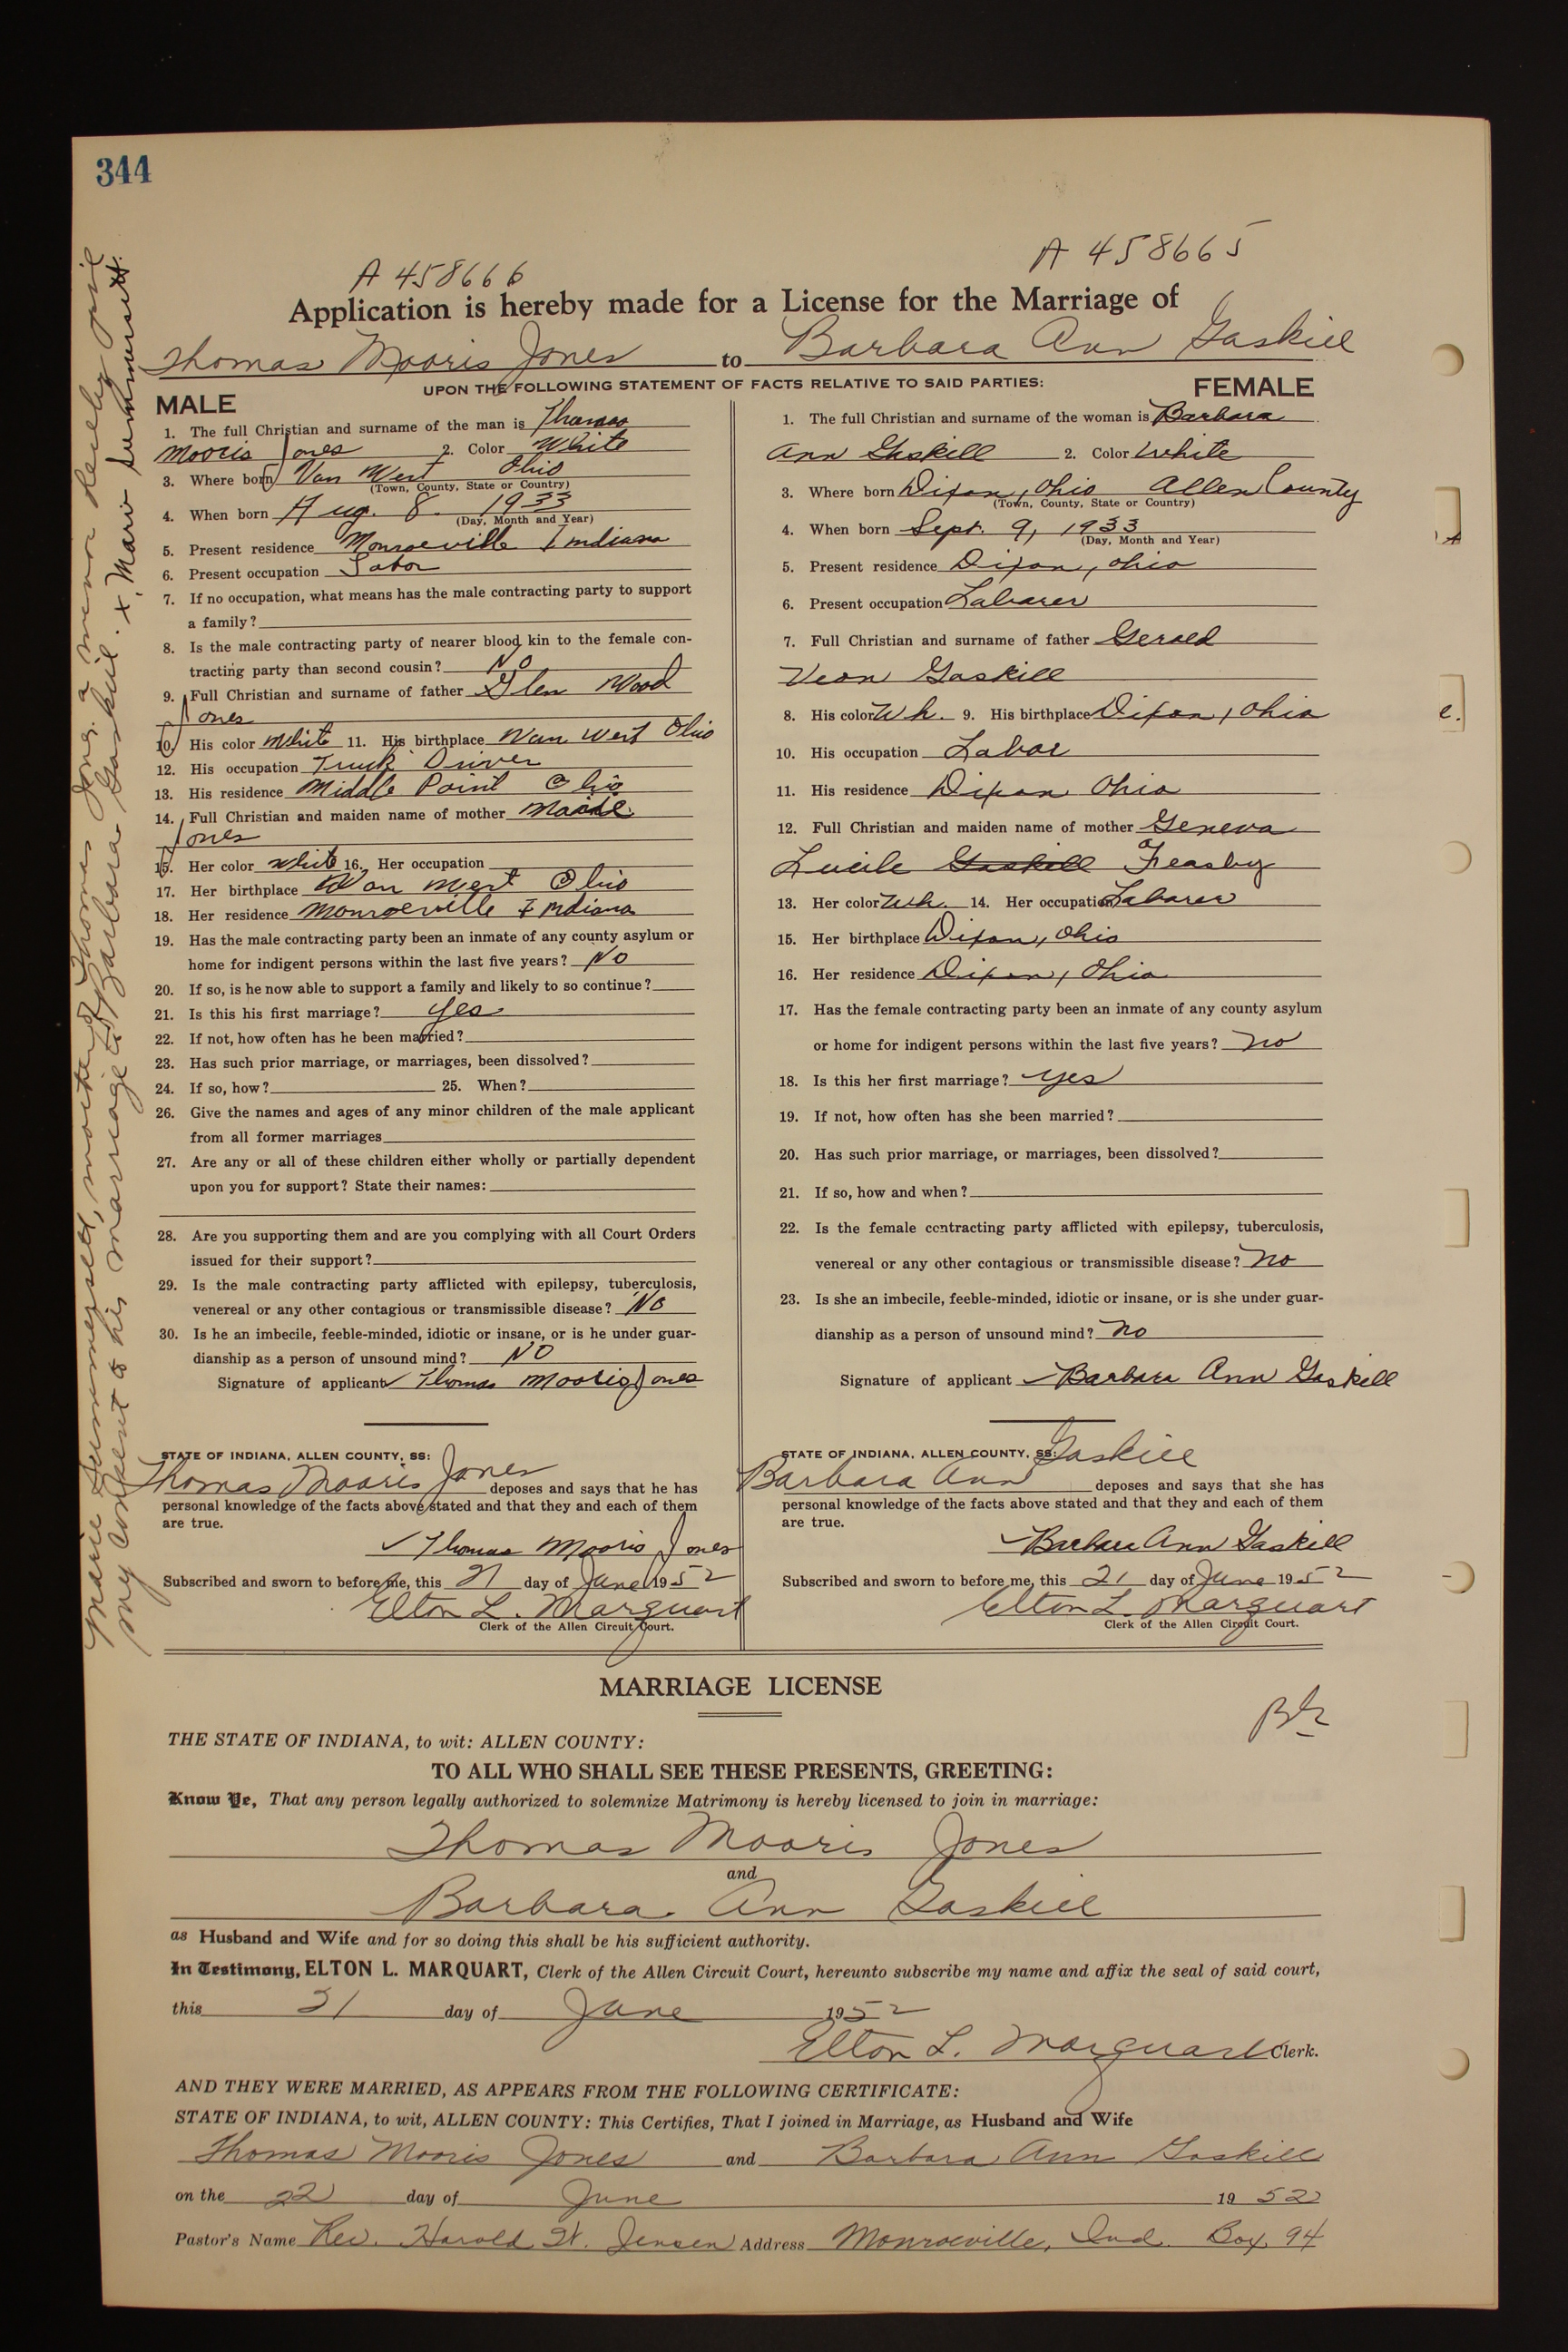 344
A 458666
A 458665
Application is hereby made for a License for the Marriage of
Thomas Mooris Jones to Barbara Ann Gaskill
UPON THE FOLLOWING STATEMENT OF FACTS RELATIVE TO SAID PARTIES:
MALE
1. The full Christian and surname of the man is Thomas
Mooris Jones 2. Color White
3. Where born Van Wert Ohio
(Town, County, State or Country)
4. When born Aug. 8. 1933
(Day, Month and Year)
5. Present residence Monroeville Indiana
6. Present occupation Labor
7. If no occupation, what means has the male contracting party to support
a family?
8. Is the male contracting party of nearer blood kin to the female con-
tracting party than second cousin? NO
9. Full Christian and surname of father Glen Wood
Jones
10. His color White 11. His birthplace Van Wert Ohio
12. His occupation Truck Driver
13. His residence Middle Point Ohio
14. Full Christian and maiden name of mother
Jones
15. Her color White 16. Her occupation
17. Her birthplace Van Wert Ohio
18. Her residence Monroeville Indiana
19. Has the male contracting party been an inmate of any county asylum or
home for indigent persons within the last five years? No
20. If so, is he now able to support a family and likely to so continue?
21. Is this his first marriage? Yes
22. If not, how often has he been married?
23. Has such prior marriage, or marriages, been dissolved?
24. If so, how? 25. When?
26. Give the names and ages of any minor children of the male applicant
from all former marriages
27. Are any or all of these children either wholly or partially dependent
upon you for support? State their names:
28. Are you supporting them and are you complying with all Court Orders
issued for their support?
29. Is the male contracting party afflicted with epilepsy, tuberculosis,
venereal or any other contagious or transmissible disease? No
30. Is he an imbecile, feeble-minded, idiotic or insane, or is he under guar-
dianship as a person of unsound mind? NO
Signature of applicant Thomas Mooris Jones
STATE OF INDIANA, ALLEN COUNTY, SS:
Thomas Mooris Jones deposes and says that he has
personal knowledge of the facts above stated and that they and each of them
are true.
Thomas Mooris Jones
Subscribed and sworn to before me, this 21 day of June 1952
Elton L. Marquart
Clerk of the Allen Circuit Court.
FEMALE
1. The full Christian and surname of the woman is Barbara
Ann Gaskill 2. Color White
3. Where born Dixon, Ohio Allen County
(Town, County, State or Country)
4. When born Sept. 9, 1933
(Day, Month and Year)
5. Present residence Dixon, Ohio
6. Present occupation Laborer
7. Full Christian and surname of father Gerald
Veon Gaskill
8. His color Wh. 9. His birthplace Dixon, Ohio
10. His occupation Labor
11. His residence Dixon Ohio
12. Full Christian and maiden name of mother Geneva
Lucile Gaskill Feasby
13. Her color Wh. 14. Her occupation Laborer
15. Her birthplace Dixon, Ohio
16. Her residence Dixon, Ohio
17. Has the female contracting party been an inmate of any county asylum
or home for indigent persons within the last five years? no
18. Is this her first marriage? yes
19. If not, how often has she been married?
20. Has such prior marriage, or marriages, been dissolved?
21. If so, how and when?
22. Is the female contracting party afflicted with epilepsy, tuberculosis,
venereal or any other contagious or transmissible disease? no
23. Is she an imbecile, feeble-minded, idiotic or insane, or is she under guar-
dianship as a person of unsound mind? no
Signature of applicant Barbara Ann Gaskell
STATE OF INDIANA, ALLEN COUNTY, SS:
Barbara Ann Gaskill deposes and says that she has
personal knowledge of the facts above stated and that they and each of them
are true.
Barbara Ann Gaskill
Subscribed and sworn to before me, this 21 day of June 1952
Elton L. Marquart
Clerk of the Allen Circuit Court.
Marie Summersett, mother of Thomas Jones, a minor hereby give
my consent to his marriage to Barbara Gaskill. x. Marie Summersett.
MARRIAGE LICENSE
THE STATE OF INDIANA, to wit: ALLEN COUNTY:
TO ALL WHO SHALL SEE THESE PRESENTS, GREETING:
Know Ye, That any person legally authorized to solemnize Matrimony is hereby licensed to join in marriage:
Thomas Mooris Jones
and
Barbara Ann Gaskill
as Husband and Wife and for so doing this shall be his sufficient authority.
In Testimony, ELTON L. MARQUART, Clerk of the Allen Circuit Court, hereunto subscribe my name and affix the seal of said court,
this 21 day of June 1952
Elton L. Marquart Clerk.
AND THEY WERE MARRIED, AS APPEARS FROM THE FOLLOWING CERTIFICATE:
STATE OF INDIANA, to wit, ALLEN COUNTY: This Certifies, That I joined in Marriage, as Husband and Wife
Thomas Mooris Jones and Barbara Ann Gaskill
on the 22 day of June 1952
Pastor's Name Rev. Harold W. Jensen Address Monroeville, Ind. Box 94